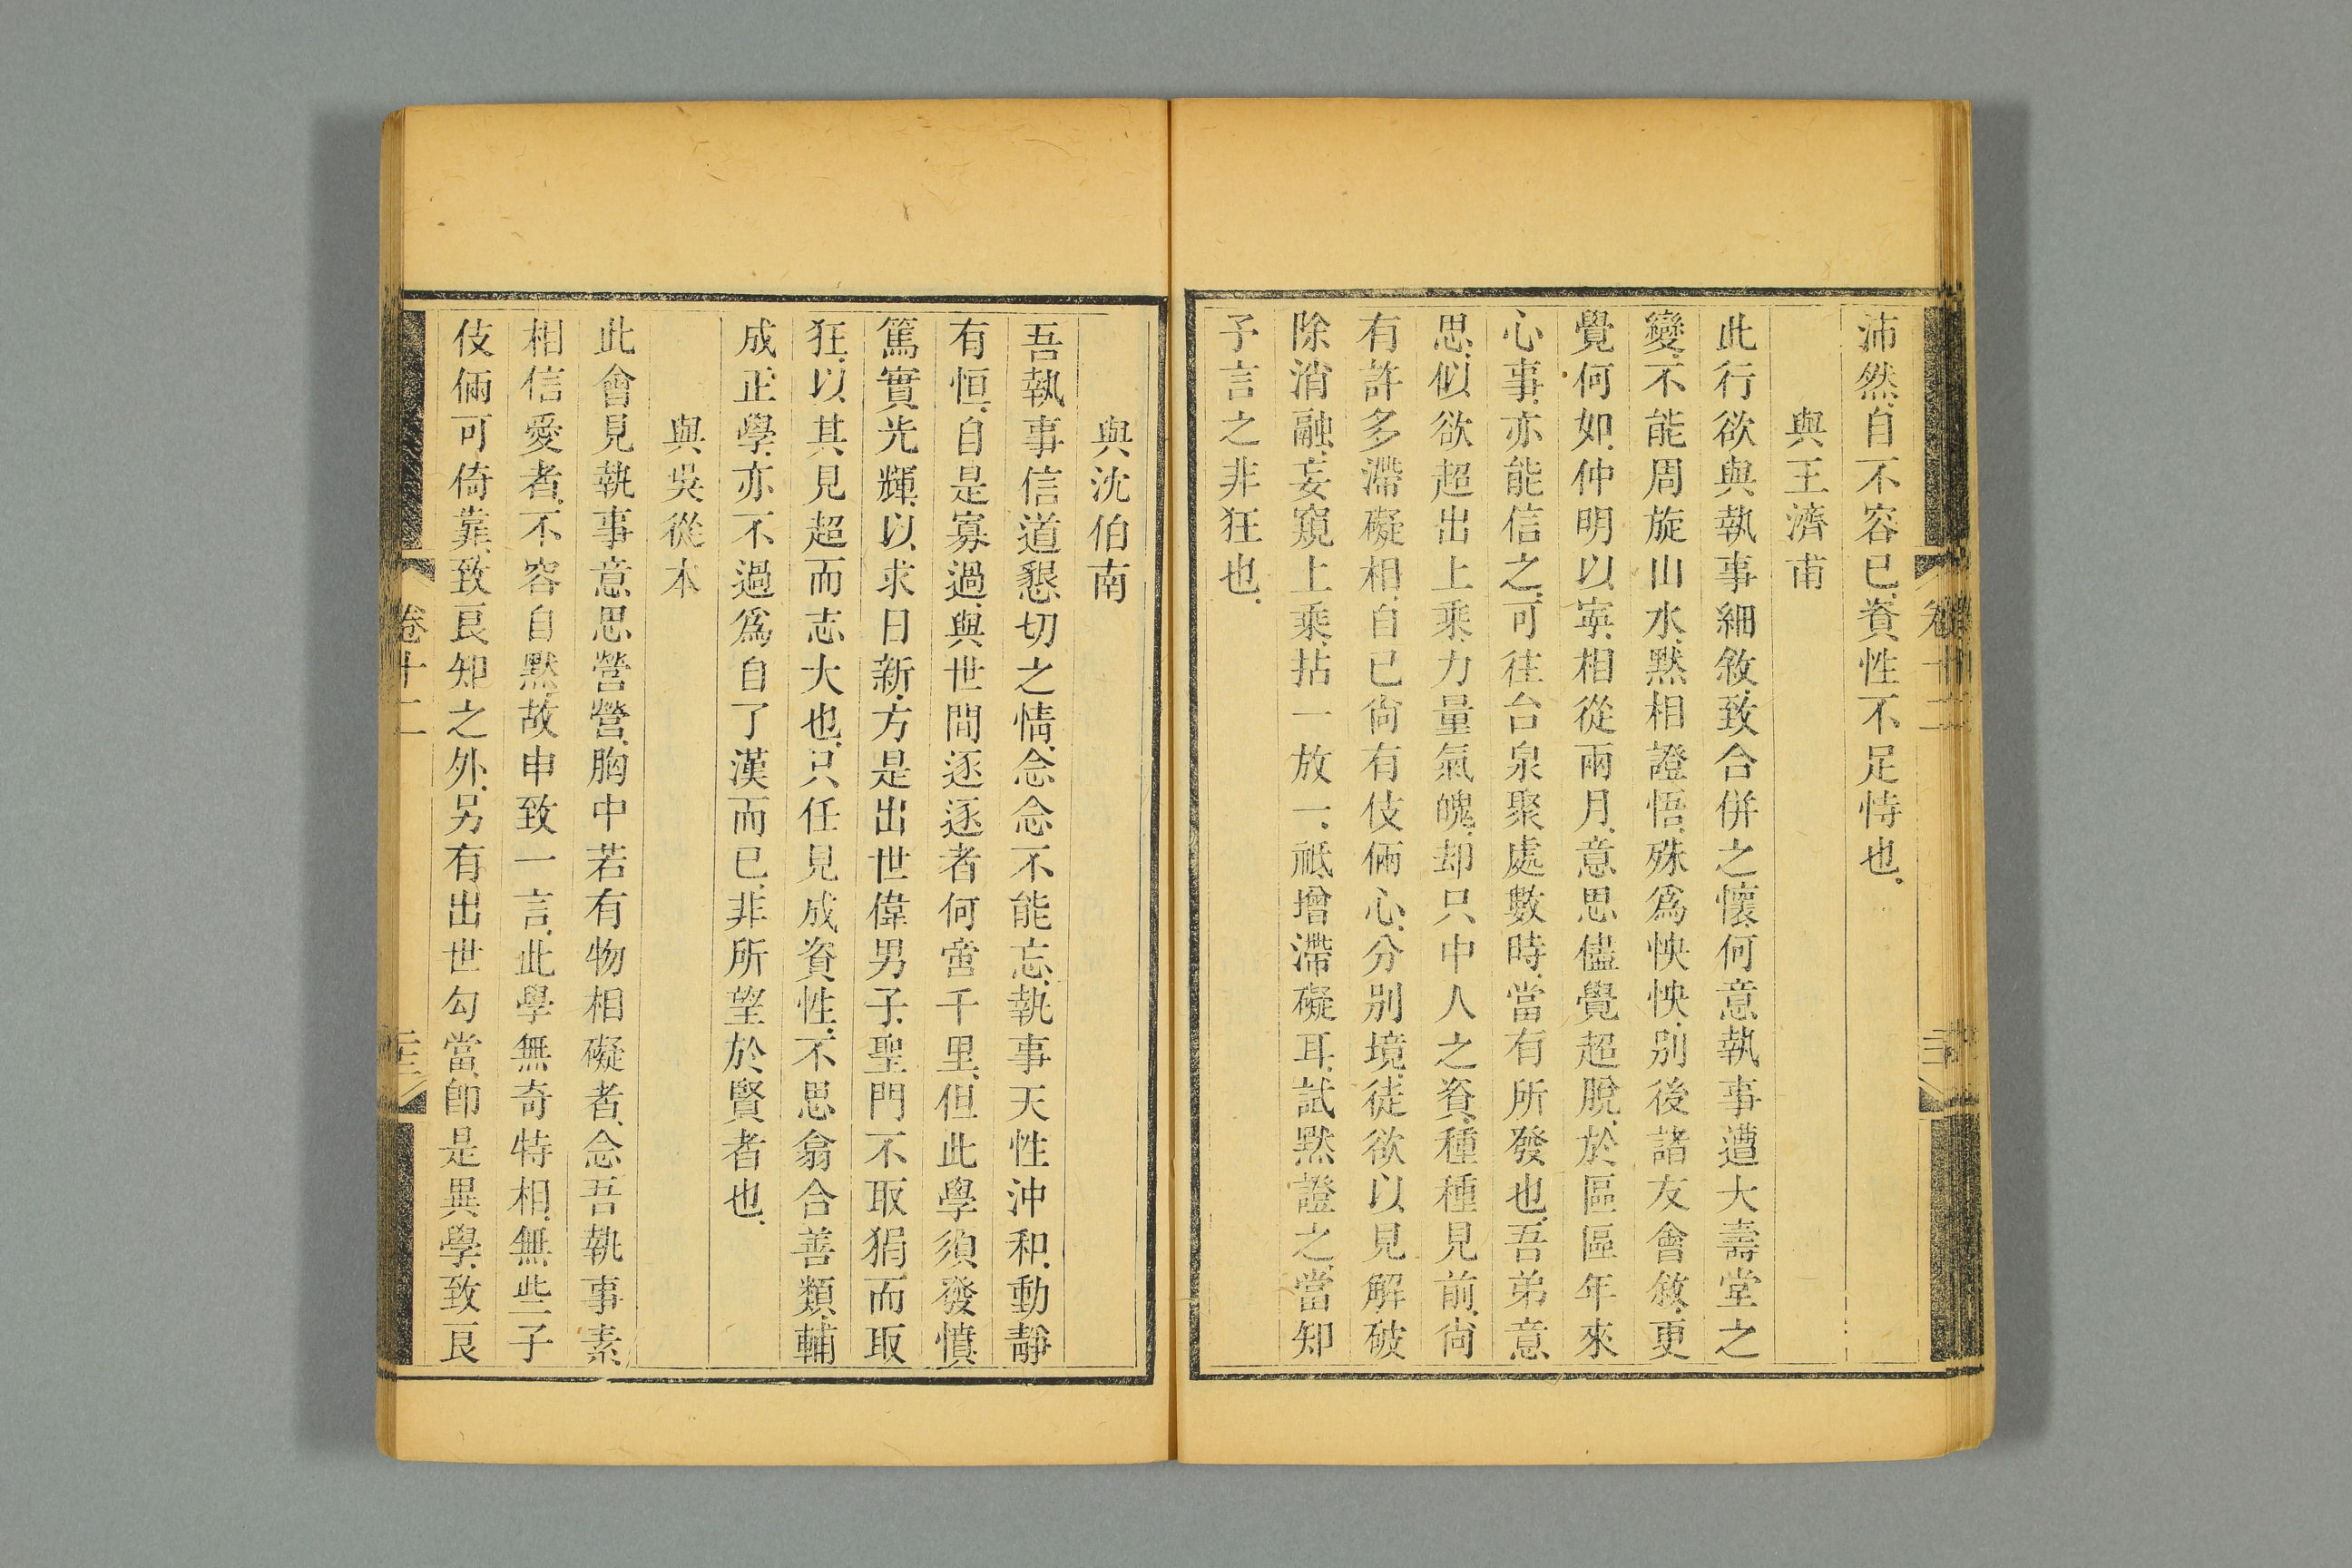 沛然.自不容已.資性不足恃也.
與王濟甫
此行欲與執事細敘.致合併之懷.何意執事遭大壽堂之
變.不能周旋山水.默相證悟.殊爲怏怏.別後諸友會敘.更
覺何如.仲明以寧.相從兩月.意思儘覺超脫.於區區年來
心事.亦能信之.可往台泉聚處數時.當有所發也.吾弟意
思.似欲超出上乘.力量氣魄.却只中人之資.種種見前.尙
有許多滯礙相.自已尙有伎倆心.分別境.徒欲以見解破
除消融.妄窺上乘.拈一放一.祗增滯礙耳.試默證之.當知
予言之非狂也.
與沈伯南
吾執事信道懇切之情.念念不能忘.執事天性沖和.動靜
有恒.自是寡過.與世間逐逐者何啻千里.但此學須發憤
篤實光輝.以求日新.方是出世偉男子.聖門不取狷而取
狂.以其見超而志大也.只任見成資性.不思翕合善類.輔
成正學.亦不過爲自了漢而已.非所望於賢者也.
與吳從本
此會見執事意思營營.胸中若有物相礙者.念吾執事素
相信愛者.不容自默.故申致一言.此學無奇特相.無些子
伎倆可倚靠.致良知之外.另有出世勾當.卽是異學.致良
卷十二